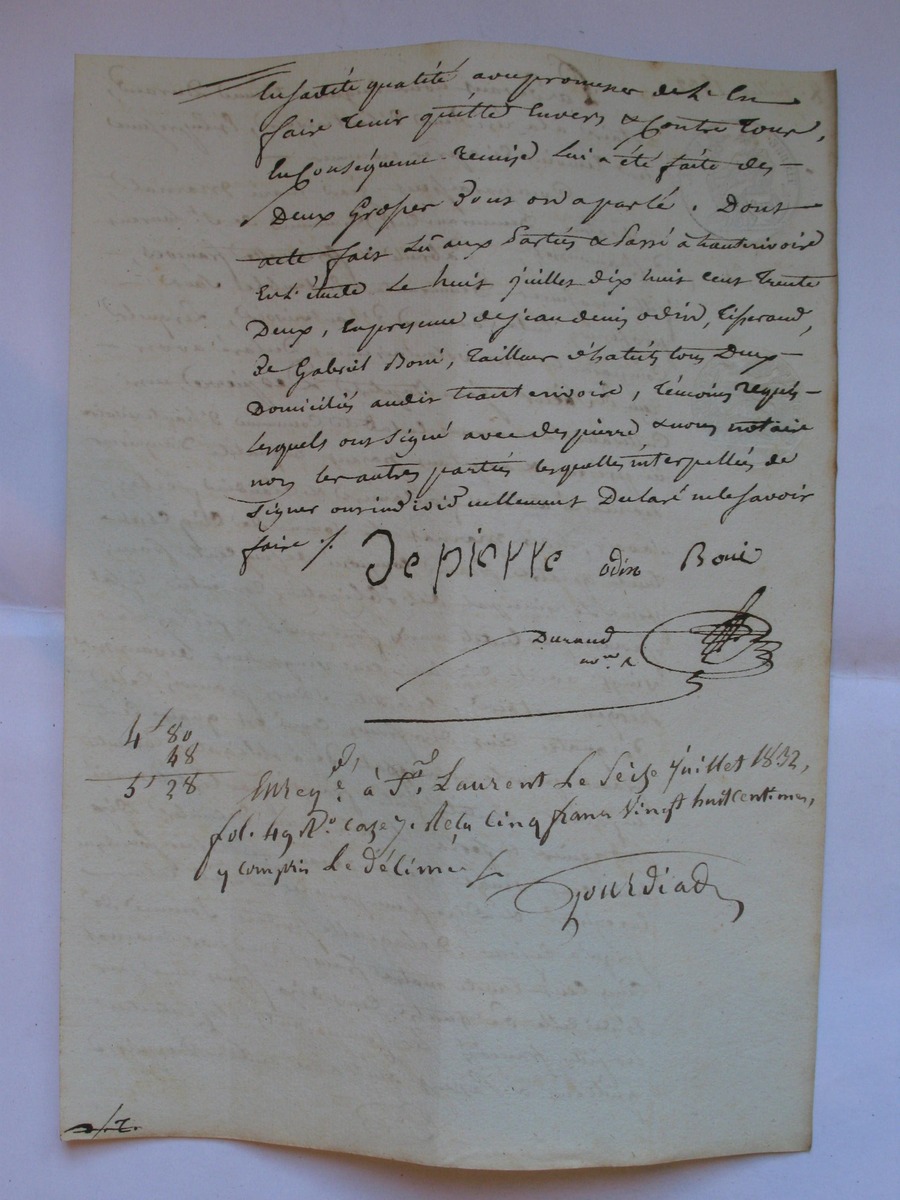 En sadite qualité avec promesse de l'en
faire tenir quitte Envers & Contre tous,
En Conséquence remise lui a été faite des
Deux Grosses dont on a parlé. Dont
acte fait Lu aux Parties & Passé à hauterivoire
En l'étude Le huit juillet dix huit cent trente
Deux, En presence de jean denis odin, tisserand,
& Gabriel Boni, tailleur d'habits tous Deux
Domiciliés audit hauterivoire, témoins requis
lesquels ont signé avec depierre & nous notaire
non les autres parties lesquelles interpellées de
signer ont individuellement Declaré ne le savoir
faire ./.
De pierre odin Boni
Durand
nore
4f 80
48
5f 28
Enregé. à St. Laurent Le Seize Juillet 1832,
fol. 49 Ro. case 7. Reçu Cinq francs Vingt huit Centimes,
y compris Le Décime
Gourdiat